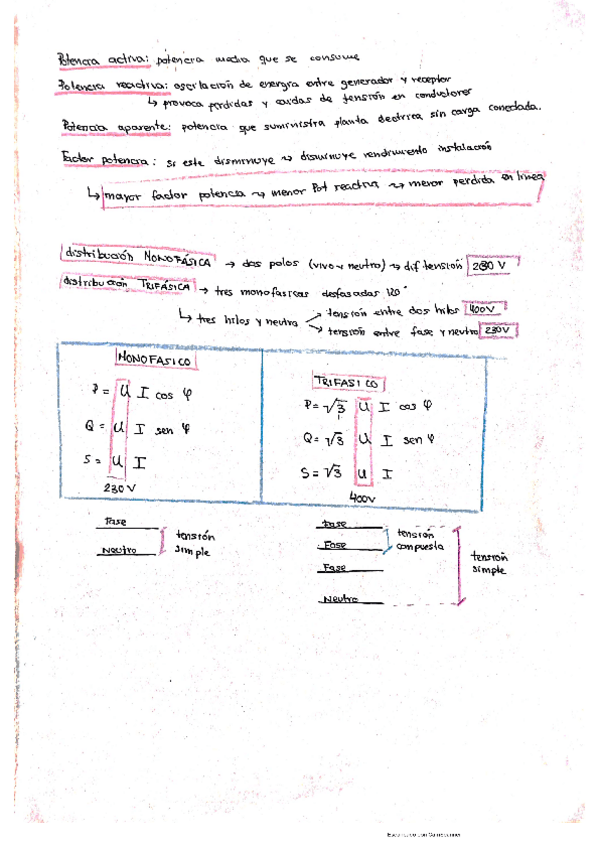 Potencia activa: potencia media que se consume
Potencia reactiva: oscilación de energía entre generador y receptor
↳ provoca perdidas y caidas de tensión en conductores
Potencia aparente: potencia que suministra planta electrica sin carga conectada.
Factor potencia: si este disminuye → disminuye rendimiento instalación
↳ mayor factor potencia → menor Pot reactiva → menor perdida en linea
distribución MONOFÁSICA → dos polos (vivo y neutro) → dif tensión 230 V
distribución TRIFÁSICA → tres monofasicas desfasadas 120°
↳ tres hilos y neutro → tensión entre dos hilos 400V
→ tensión entre fase y neutro 230V
MONOFASICO
P = U I cos φ
Q = U I sen φ
S = U I
230 V
TRIFASICO
P = √3 U I cos φ
Q = √3 U I sen φ
S = √3 U I
400V
Fase
Neutro
tensión
simple
Fase
Fase
Fase
Neutro
tensión
compuesta
tensión
simple
Escaneado con CamScanner